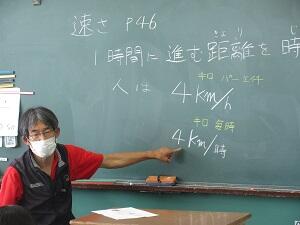 速さ P46
きょ り じ
1時間に進む距離を時
キロ パー エイチ
人は 4km/h
キロ 毎時
4km/時